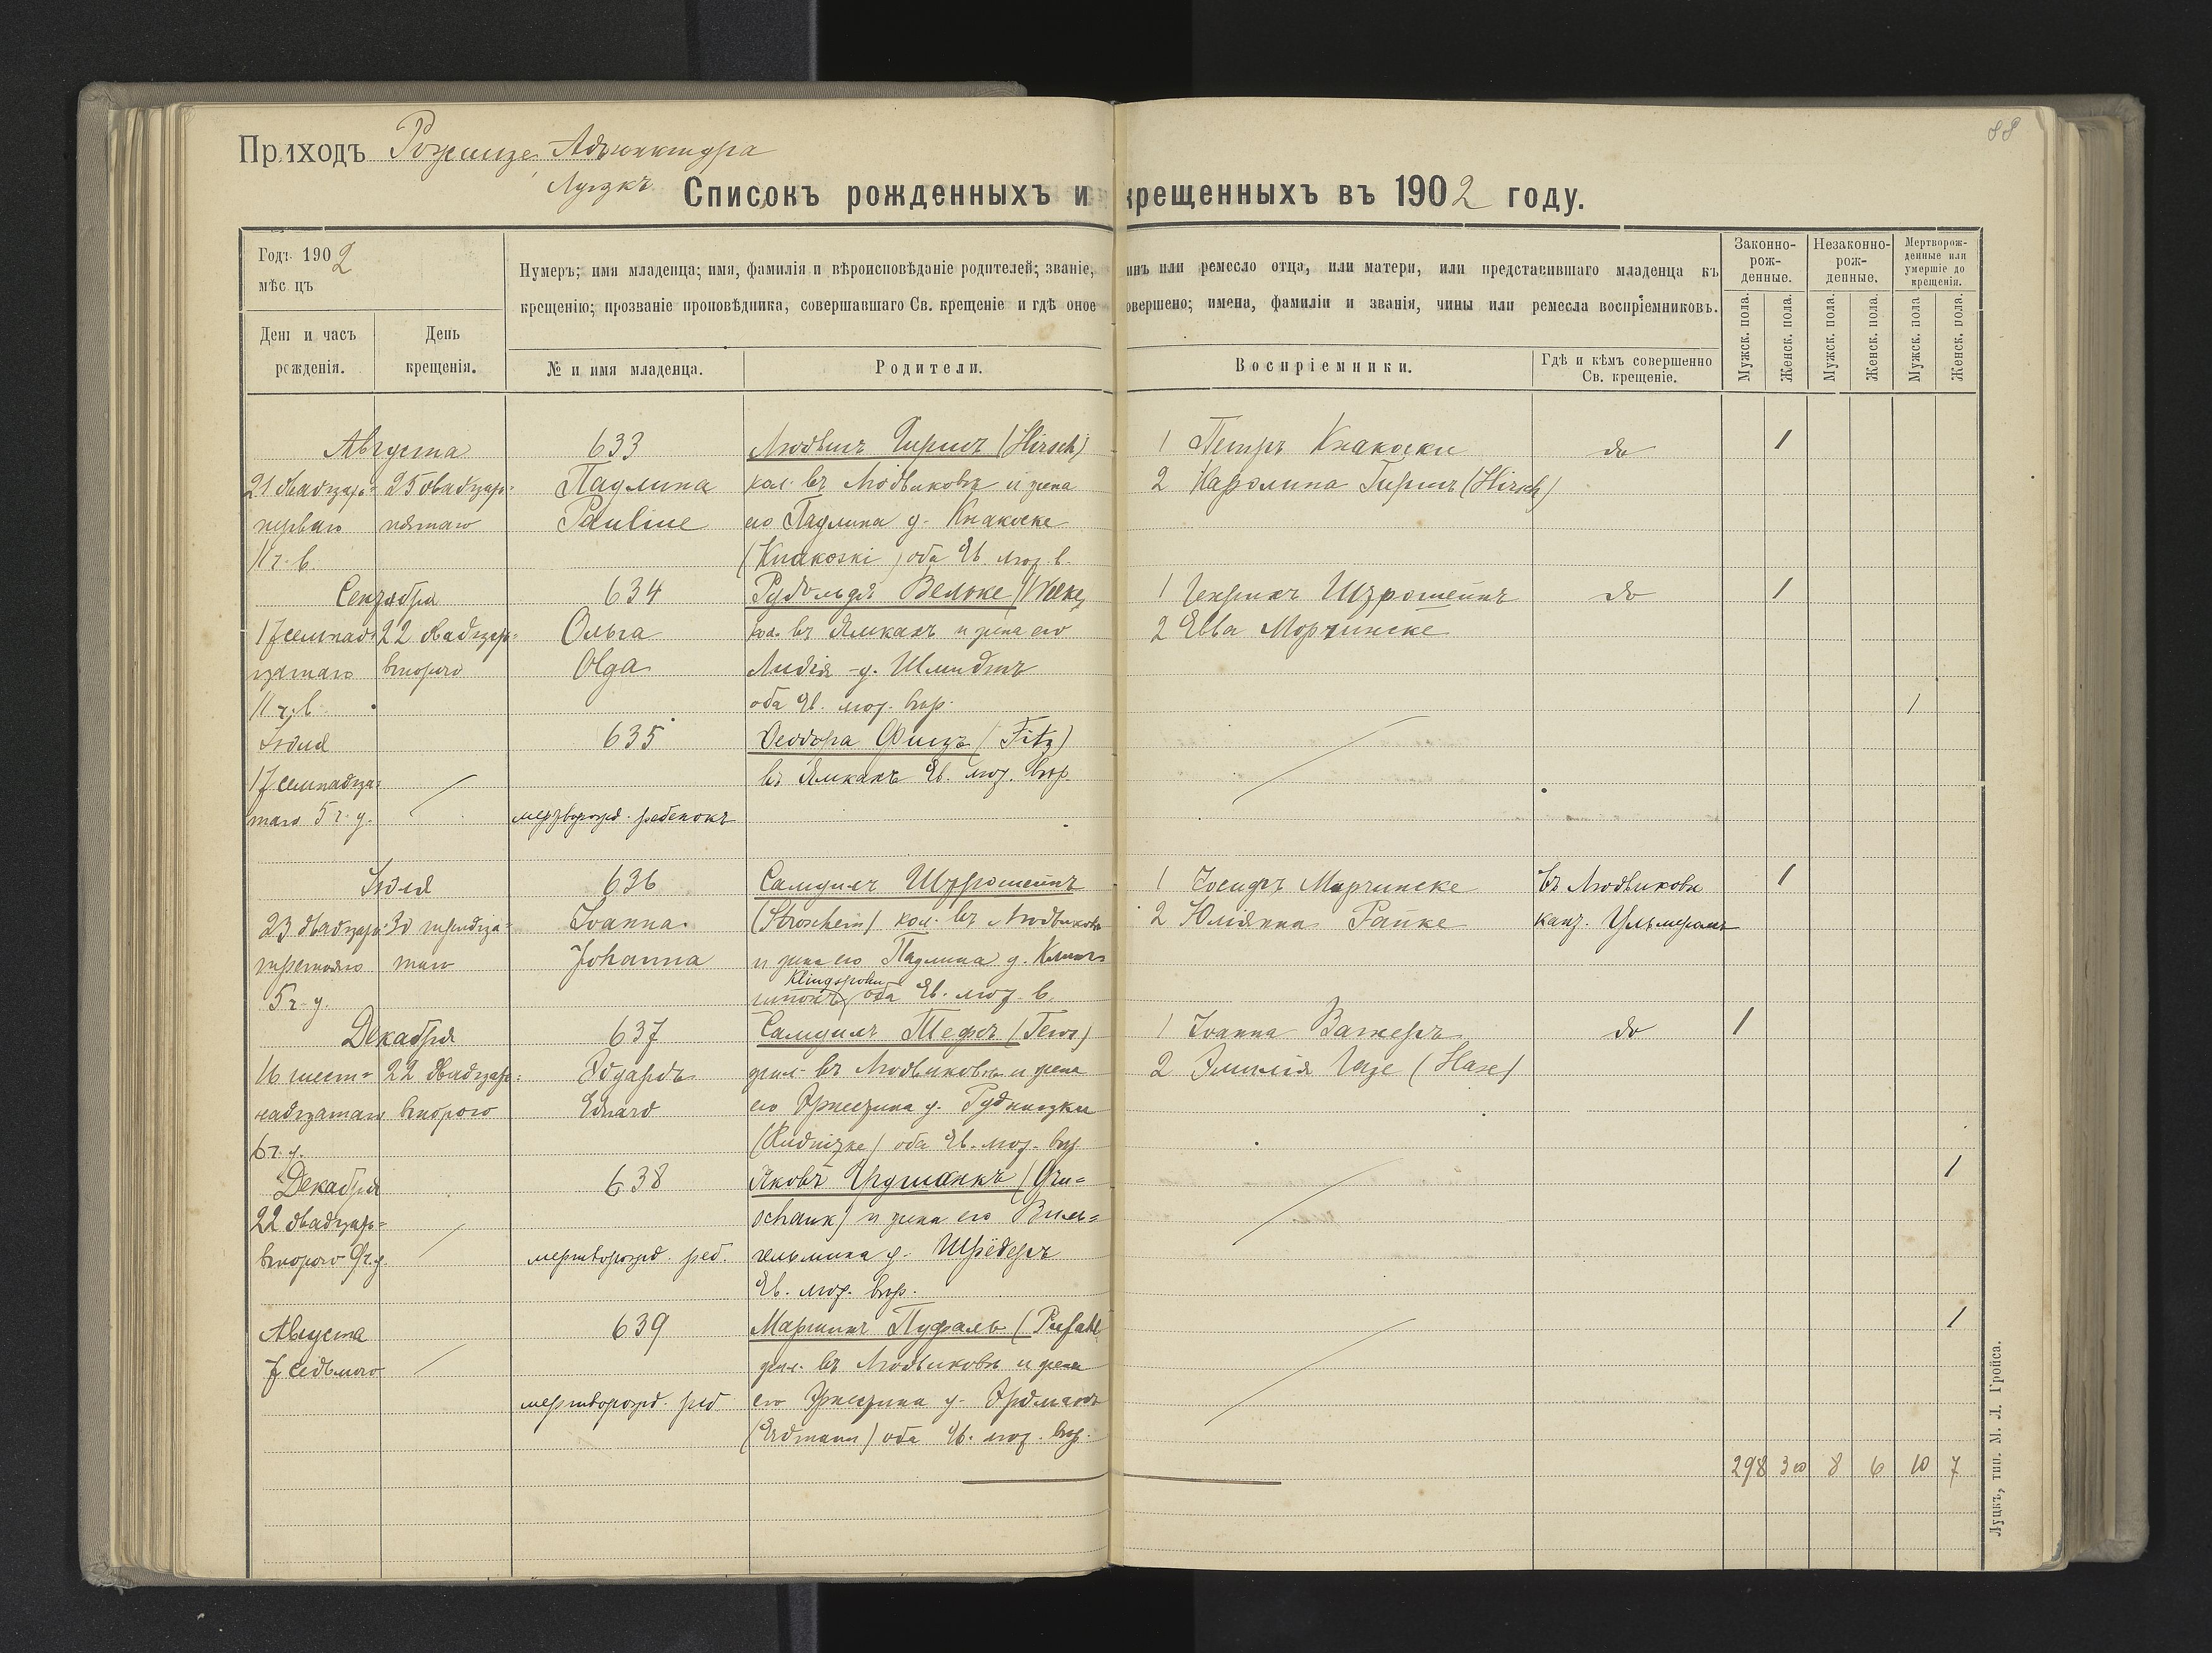 88
Приходъ Рожище, Адъюнктура
Луцкъ
Списокъ рожденныхъ и крещенныхъ въ 1902 году.
Годъ 1902
мѣсяцъ
День и часъ рожденія.
День крещенія.
Нумеръ; имя младенца; имя, фамилія и вѣроисповѣданіе родителей; званіе, чинъ или ремесло отца, или матери, или представившаго младенца къ
крещенію; прозваніе проповѣдника, совершавшаго Св. крещеніе и гдѣ оное совершено; имена, фамиліи и званія, чины или ремесла воспріемниковъ.
№ и имя младенца.
Родители.
Воспріемники.
Гдѣ и кѣмъ совершенно Св. крещеніе.
Законно-рож-денные.
Незаконно-рож-денные.
Мертворож-денные или умершіе до крещенія.
Мужск. пола.
Женск. пола.
Мужск. пола.
Женск. пола.
Мужск. пола
Женск. пола.
Августа 633 Людвигъ Гиршъ (Hirsch) 1 Петръ Кнакоски do 1
21 двадцать 25 двадцать Паулина кол. въ Людвиковкѣ и жена 2 Каролина Гиршъ (Hirsch)
перваго пятаго Pauline его Паулина у. Кнакоске
11 ч. в. (Knakoski) оба Ев. лют. в.
Сентября 634 Рудольфъ Вельке (Welke) 1 Генрихъ Штрошейнъ do 1
17 семнад- 22 двадцать- Ольга кол. въ Ямкахъ и жена его 2 Евва Морчинске
цатаго второго Olga Лидія у. Шмидтъ
11 ч. в. оба Ев. лют. вѣр. 1
Іюля 635 Теодора Фицъ (Fitz)
17 семнадца- въ Ямкахъ Ев. лют. вѣр.
таго 5 ч. у. мертворожд. ребенокъ
Іюля 636 Самуилъ Штрошейнъ 1 Іосифъ Марчинске Въ Людвиковкѣ 1
23 двадцать 30 тридца- Іоанна (Stroschein) кол. въ Людвиковкѣ 2 Юліянна Ранке кант. Ульмеромъ
третьяго таго Johanna и жена его Паулина у. Клинг-
Klingspohn
5 ч. у. шпонъ, оба Ев. лют. в.
Декабря 637 Самуилъ Тефсъ (Tews) 1 Іоанна Вагнеръ do 1
16 шест- 22 двадцать- Эдуардъ жит. въ Людвиковкѣ и жена 2 Эмилія Газе (Hase)
надцатаго второго Eduard его Эрнестина у. Рудницки
6 ч. у. (Rudnizke) оба Ев. лют. вѣр.
Декабря 638 Яковъ Грушанкъ (Gru- 1
22 двадцать- schank) и жена его Виль-
второго 9 ч. у. мертворожд. реб. гельмина у. Шрёдеръ
Ев. лют. вѣр.
Августа 639 Мартинъ Пуфаль (Pufahl 1
7 седьмого жит. въ Людвиковкѣ и жена
мертворожд. реб. его Эрнестина у. Эрдманъ
(Erdmann) оба Ев. лют. вѣр.
298 300 8 6 10 7
Луцкъ, тип. М. Л. Гройса.